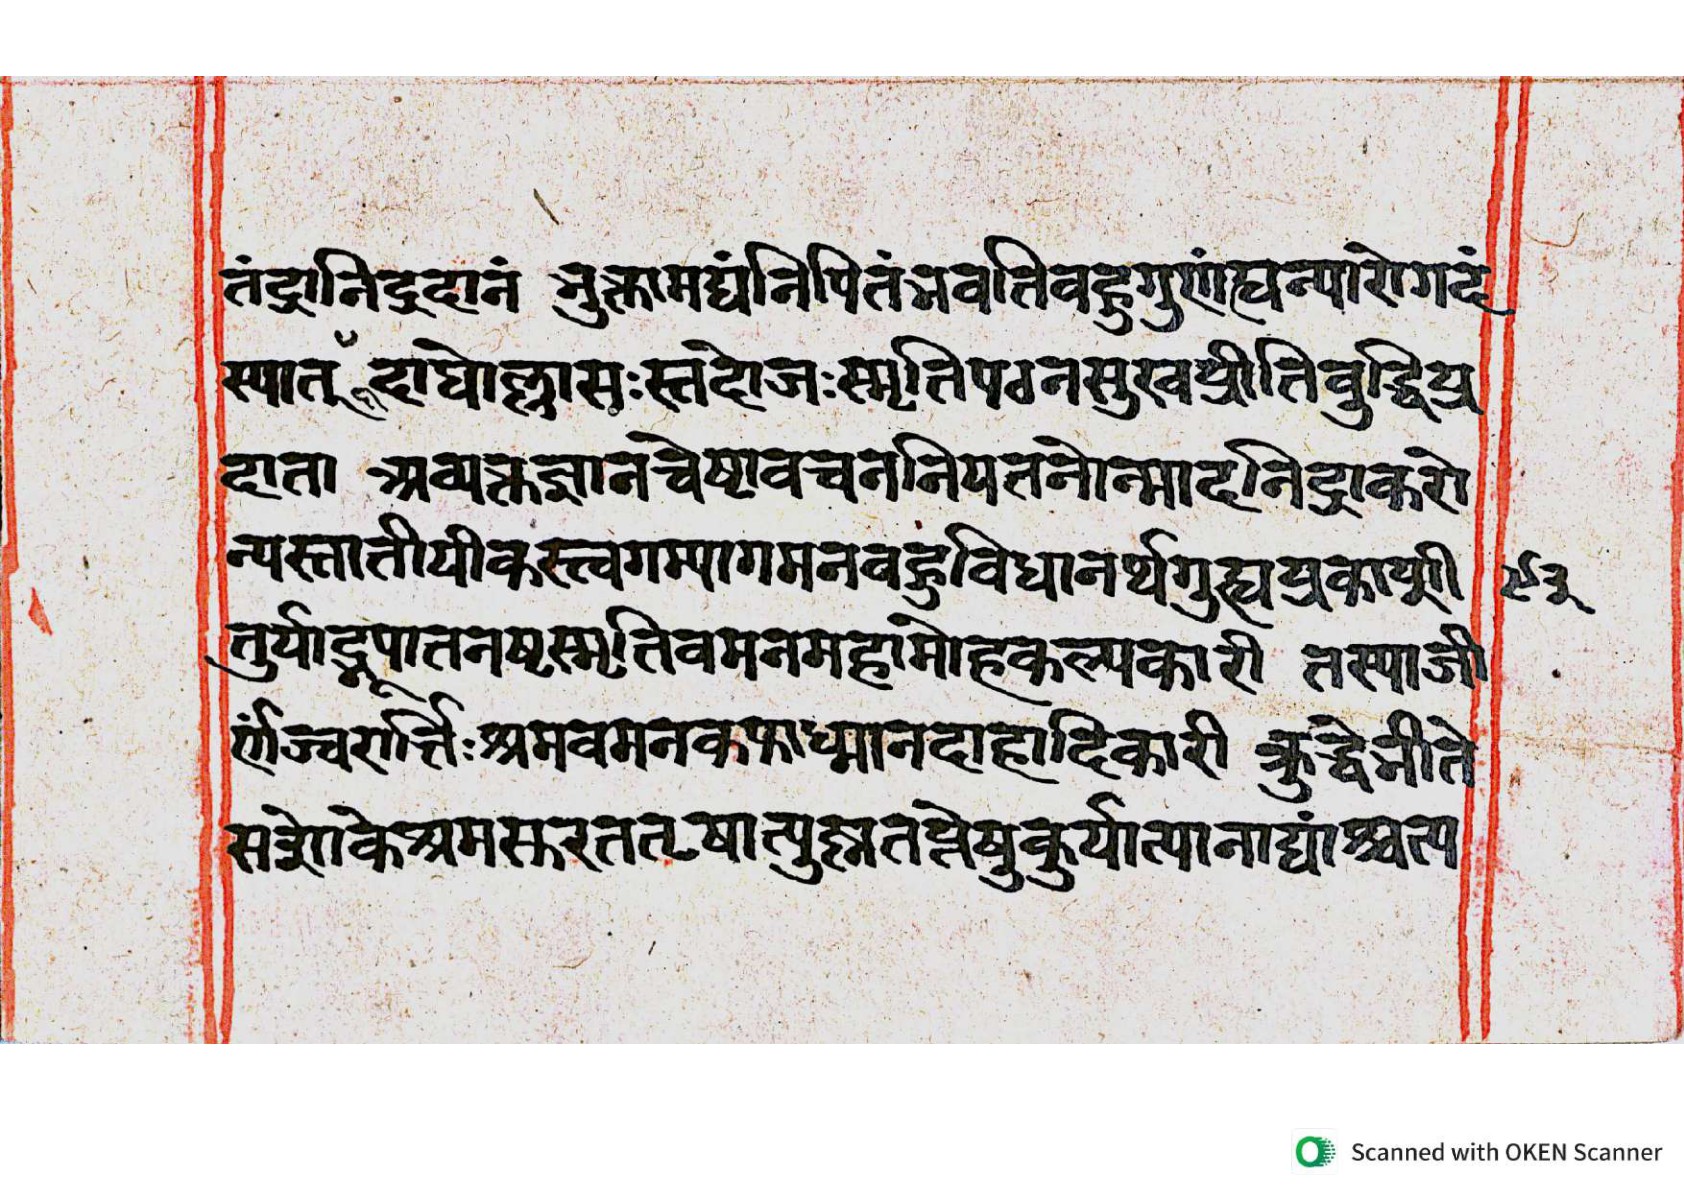 तंद्रानिदुदानं भुक्तामद्यंनिपितंभवतिवहुगुणंह्यन्यारोगदं
स्यात् दाघोल्लासःस्तदोजःस्मृतिपठनसुखप्रीतिवुद्धिप्र
दाता अव्यक्तज्ञानचेष्टावचननियतनोन्मादनिद्राकरो
न्यस्तातीयीकस्त्वगम्यागमनवहुविधानर्थगुह्यप्रकाशी
तुर्याद्भूपातनष्टस्मृतिवमनमहामोहकल्पकारी तस्याजी
र्णज्वरार्त्तिःश्रमवमनकफाध्मानदाहादिकारी क्रुद्धेभीते
सशोकेश्रमक्तरततृषात्युष्णतप्तेषुकुर्यात्पानाद्यांश्चत्प
Scanned with OKEN Scanner